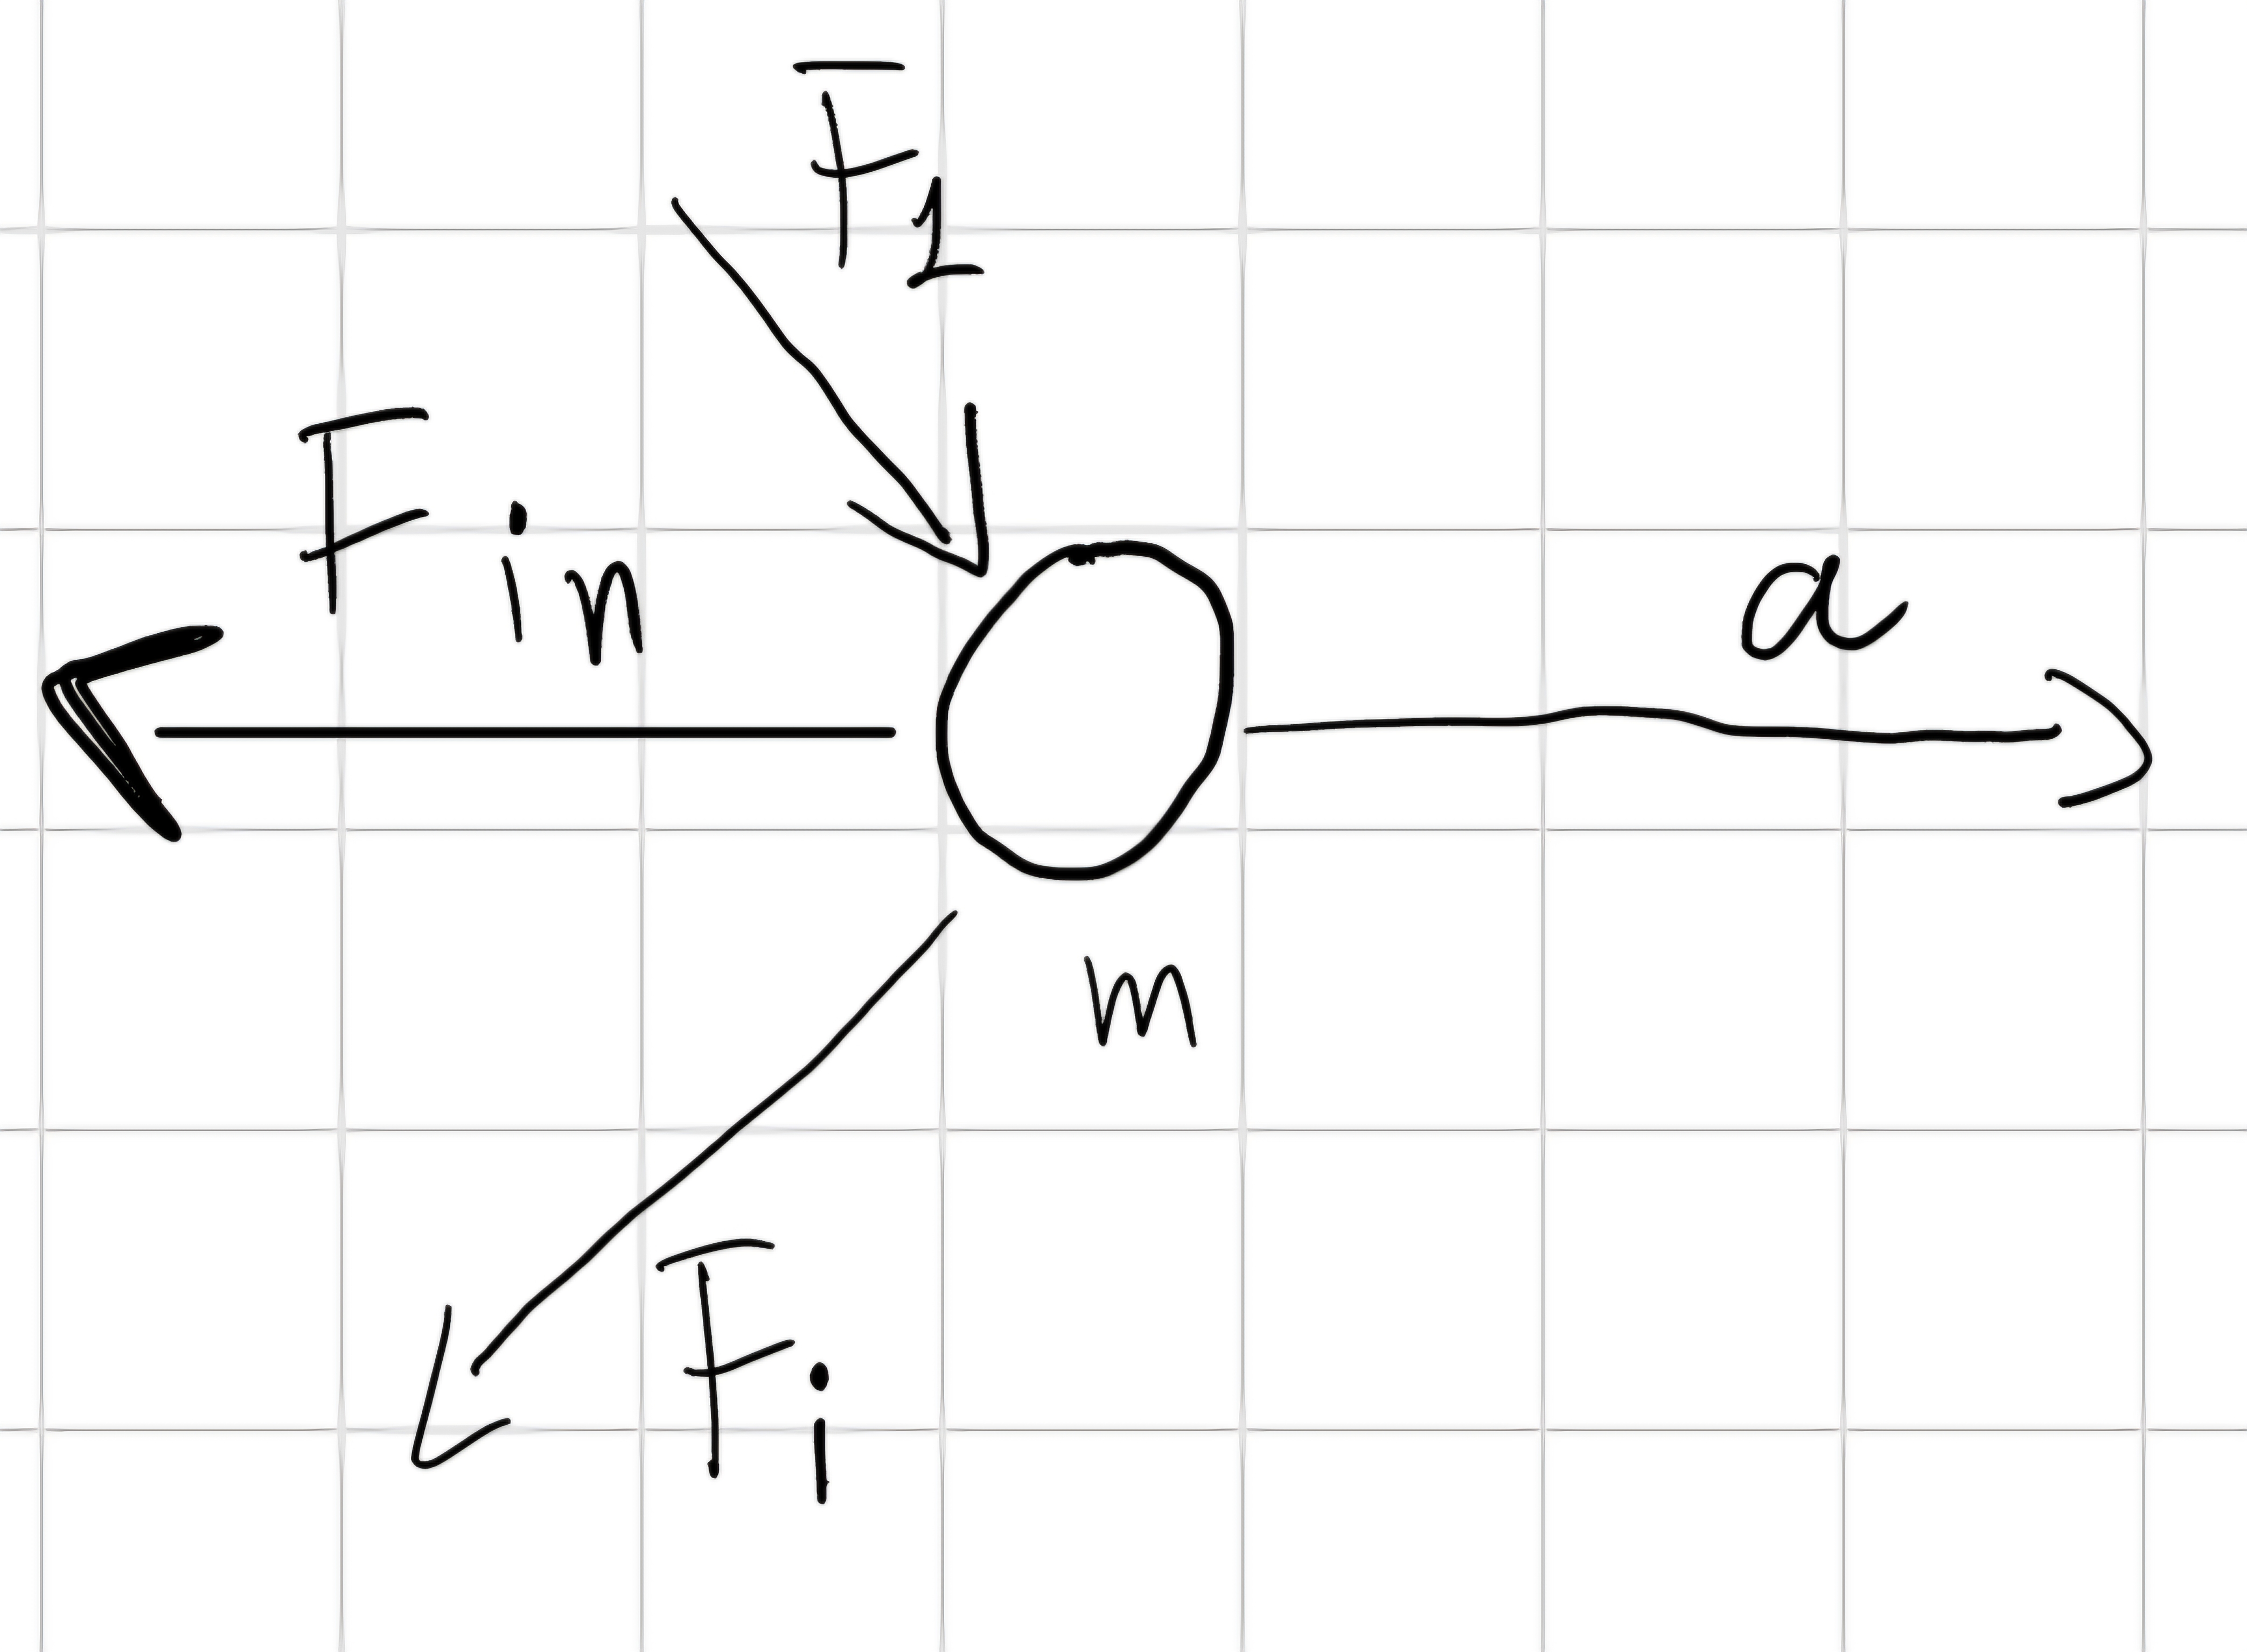 F̅1
F̅in
a
m
F̅i